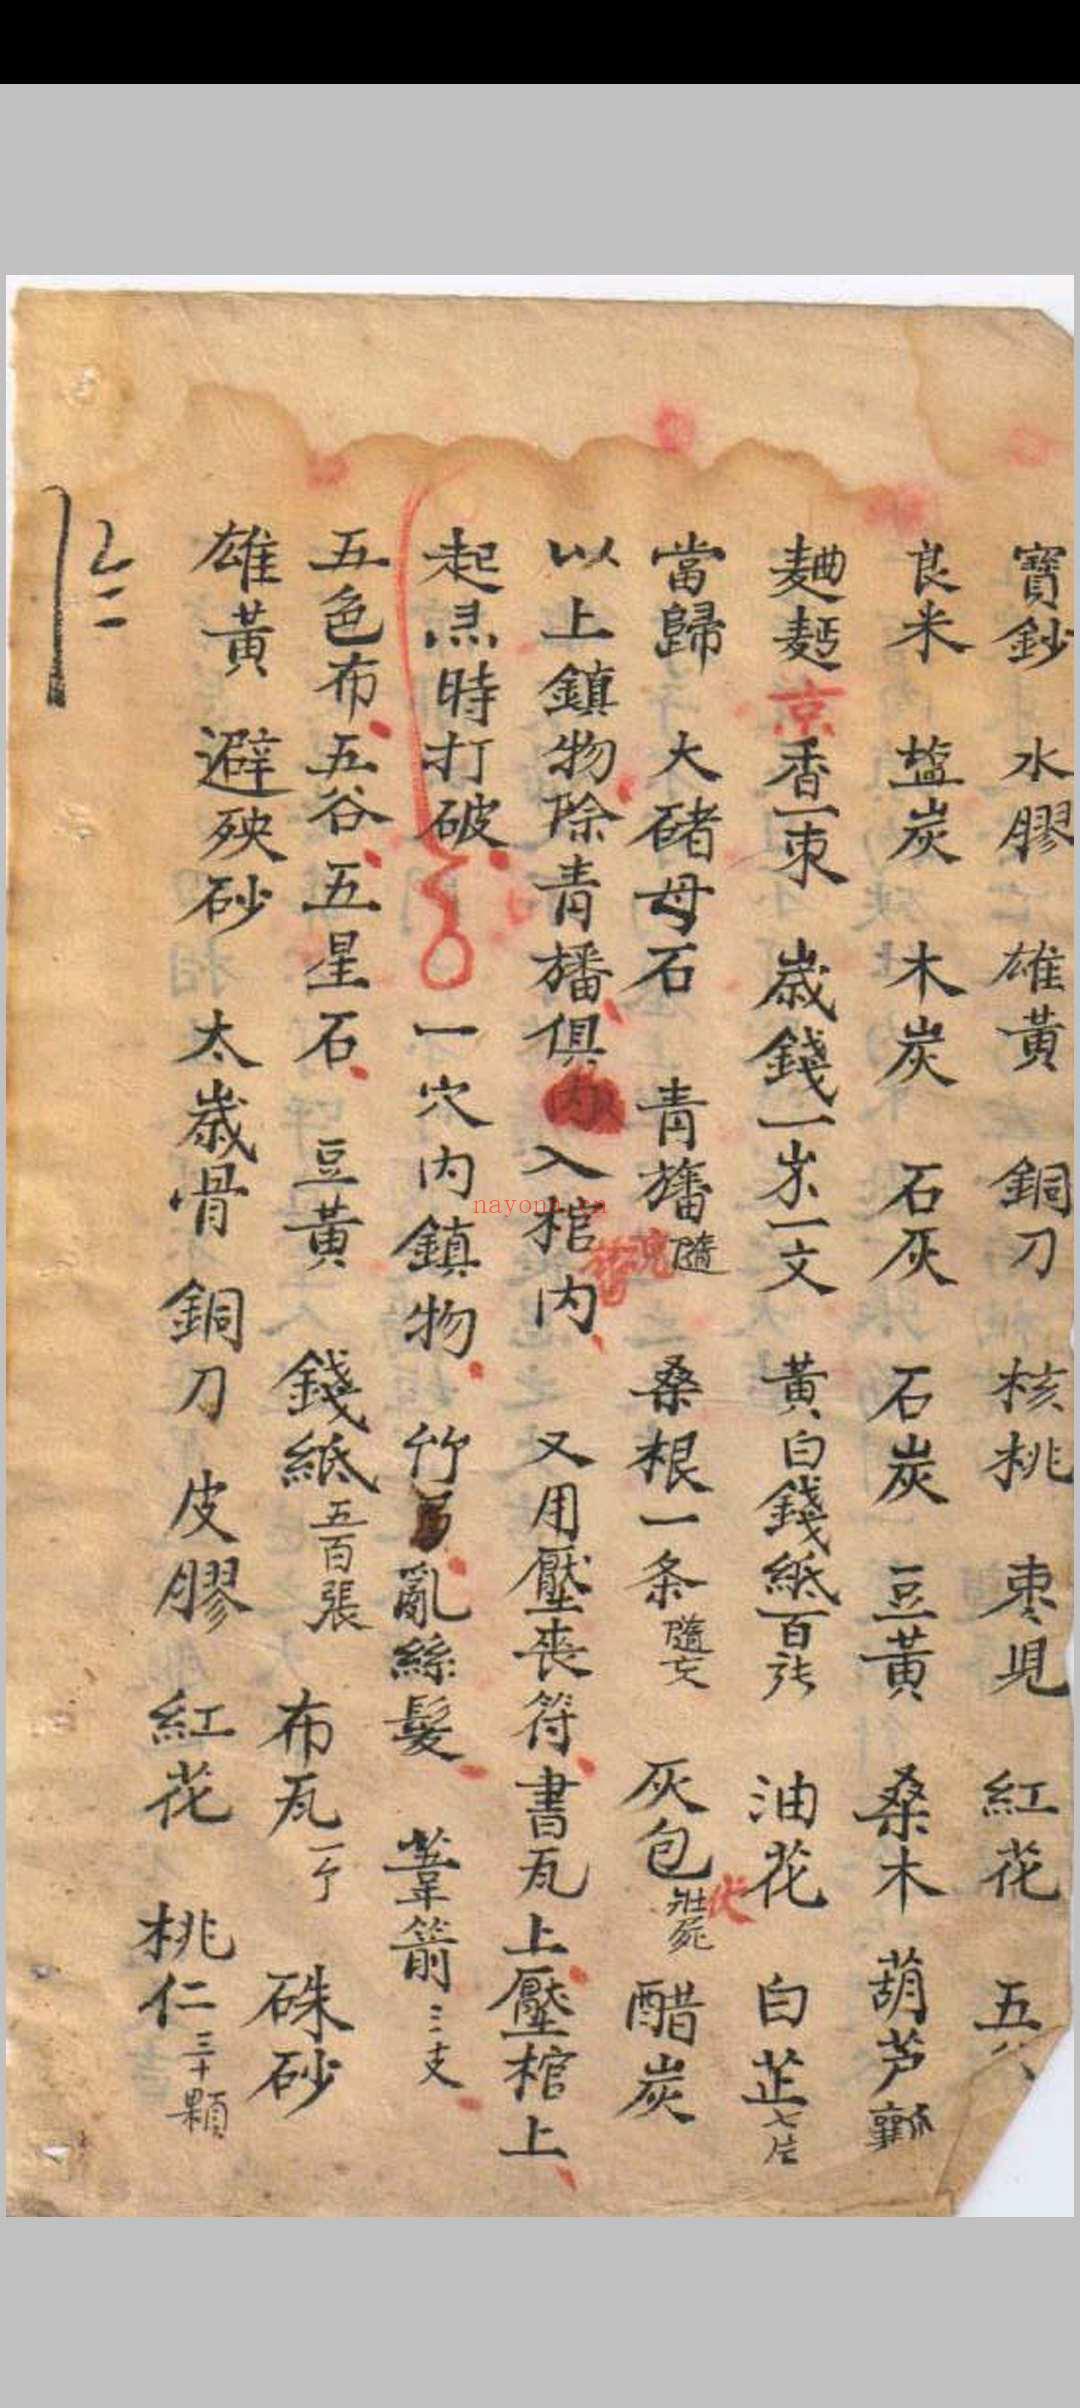 寶鈔 水膠 雄黃 銅刀 核桃 枣児 紅花 五
良米 塩炭 木炭 石灰 石炭 豆黃 桑木 葫芦
麯麪 京香一束 歲錢一岁一文 黃白錢紙百张 油花 白芷七片
當歸 大硴母石 青旛隨 桑根一条隨亡 灰包 醋炭
以上鎮物除青旛俱入棺内 又用壓丧符書瓦上壓棺上
起灵時打破 一穴内鎮物 竹弓 亂絲髮 葦箭三支
五色布 五谷 五星石 豆黃 錢紙五百張 布瓦一个 硃砂
雄黃 避殃砂 太歲骨 銅刀 皮膠 紅花 桃仁三十顆
nayona.cn